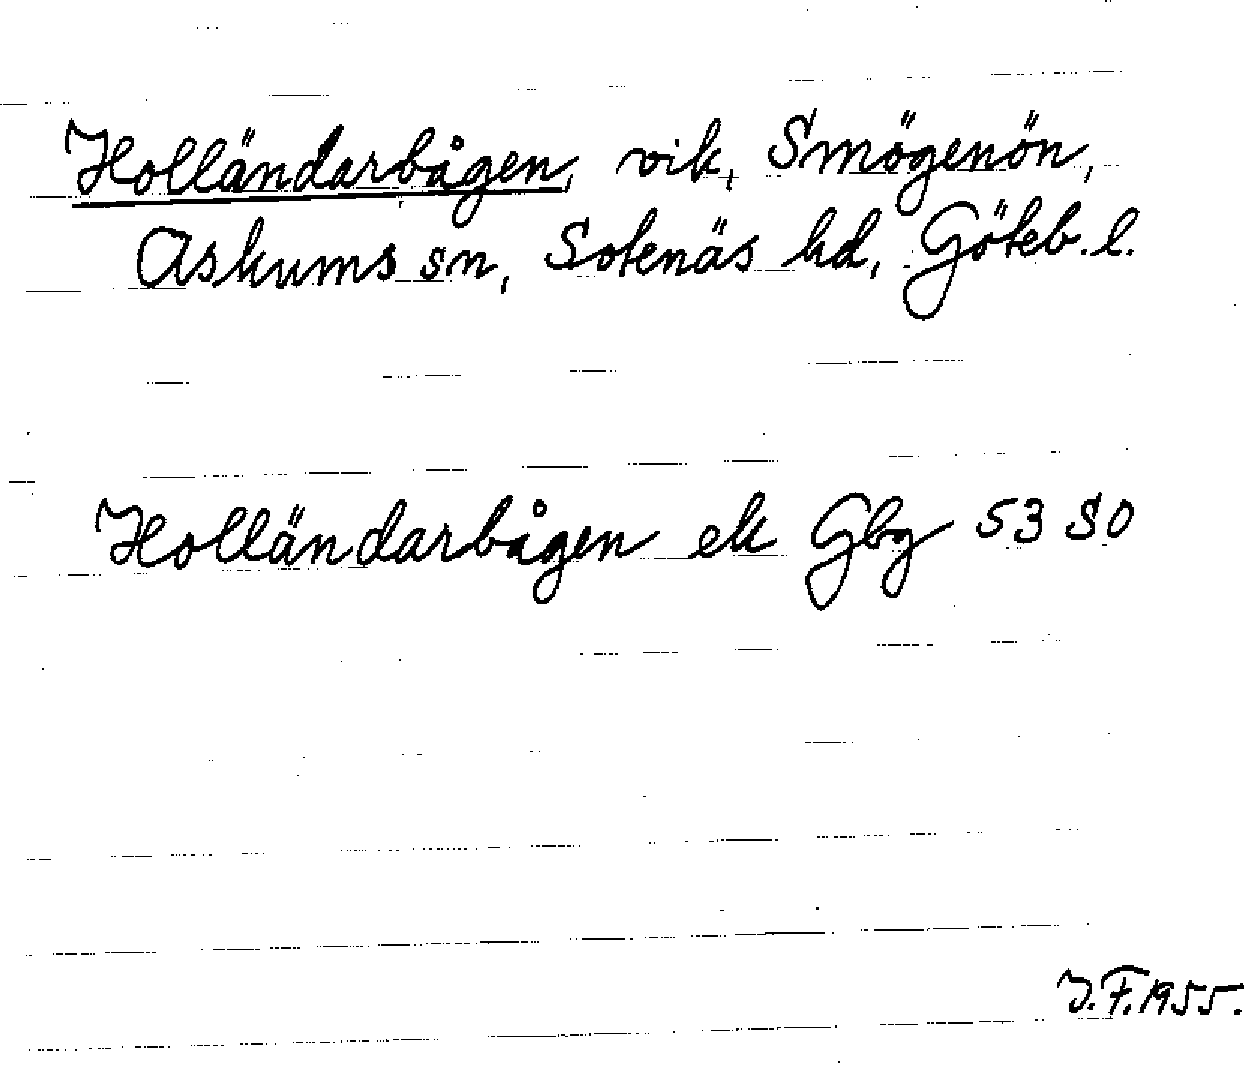 Holländarbågen, vik, Smögenön,
Askums sn, Sotenäs hd, Göteb. l.
Holländarbågen ek Gbg 53 SO
J.F. 1955.